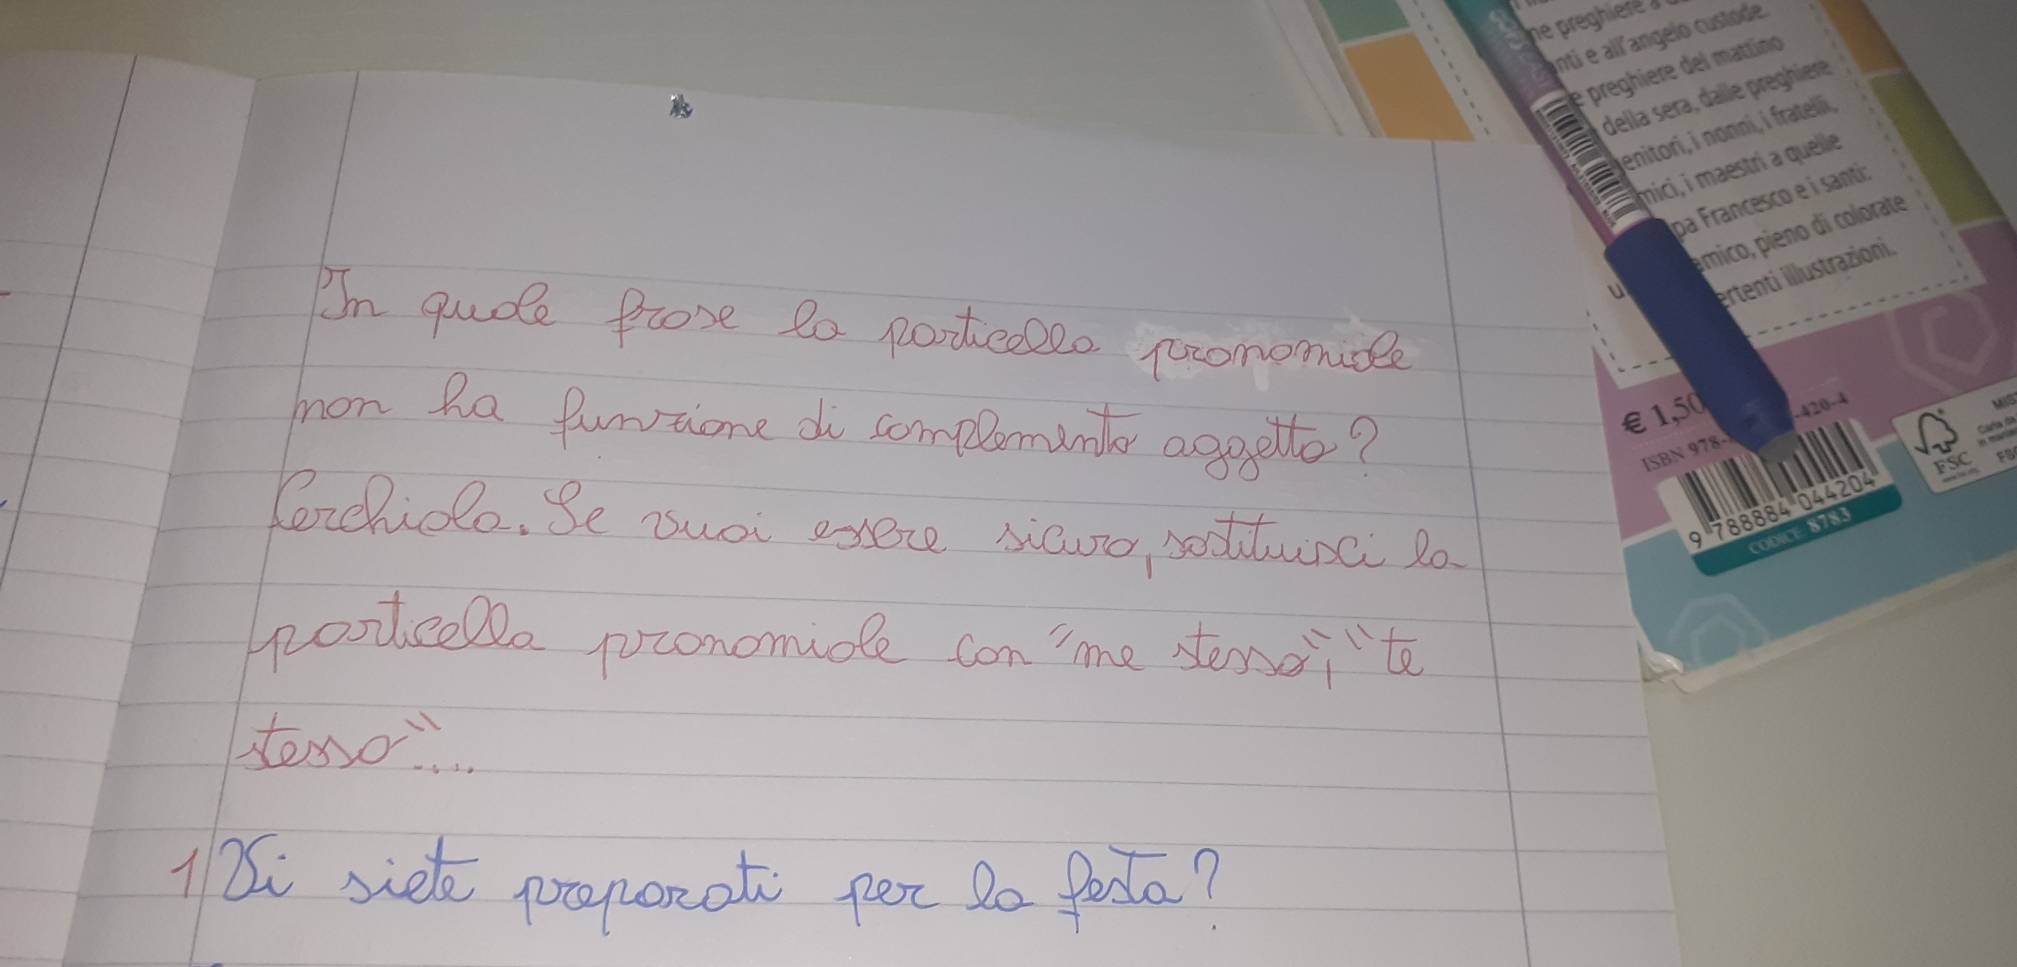 In quale frase la particella pronomiale
non ha funzione di complemento aggetto?
Cerchiala. Se vuoi essere sicuro, sostituisci la
particella pronomiale con "me stesso", "te
stesso"...
1 Vi siete preparati per la festa?
ne preghiere
nti e all'angelo custode.
e preghiere del mattino
della sera, dalle preghiere
enitori, i nonni, i fratelli,
mici, i maestri a quelle
pa Francesco e i santi:
u
amico, pieno di colorate
ertenti illustrazioni.
€ 1,50
ISBN 978-
-420-4
9 788884 044204
CODICE 8783
FSC
MIS